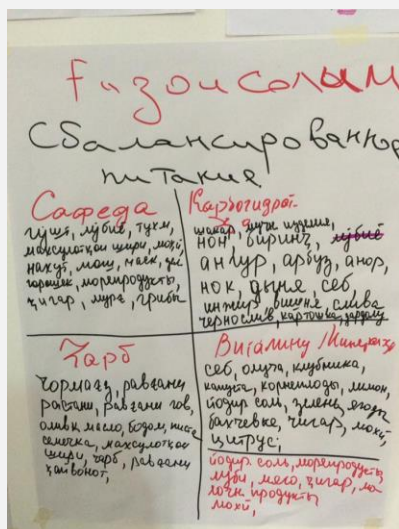 Ғизои солым
Сбалансированное
питание
Сафеда
гӯшт, лӯбиё, тухм,
махсулотҳои шири, моҳӣ,
нахуд, мош, наск,
горошек, морепродукты,
ҷигар, мурғ, грибы
Карбогидрат
шакар, муч. изделия,
нон, биринҷ, лӯбиё
ангур, арбуз, анор,
нок, дыня, себ,
инжир, вишня, слива
чернослив, картошка,
Чарб
Чормағз, равғани
растани, равғани гов,
оливк. масло, бодом, писта
семечка, махсулотҳои
шири, чарб, равғани
ҳайвонот,
Витамины/Минералы
себ, олуча, клубника,
капуста, корнеплоды, лимон,
йодир. соль, зелень, ягоды
бахчевые, ҷигар, моҳӣ,
цитрус;
йодир. соль, морепродукты,
мясо, ҷигар, мо-
лочн. продукты
моҳӣ,